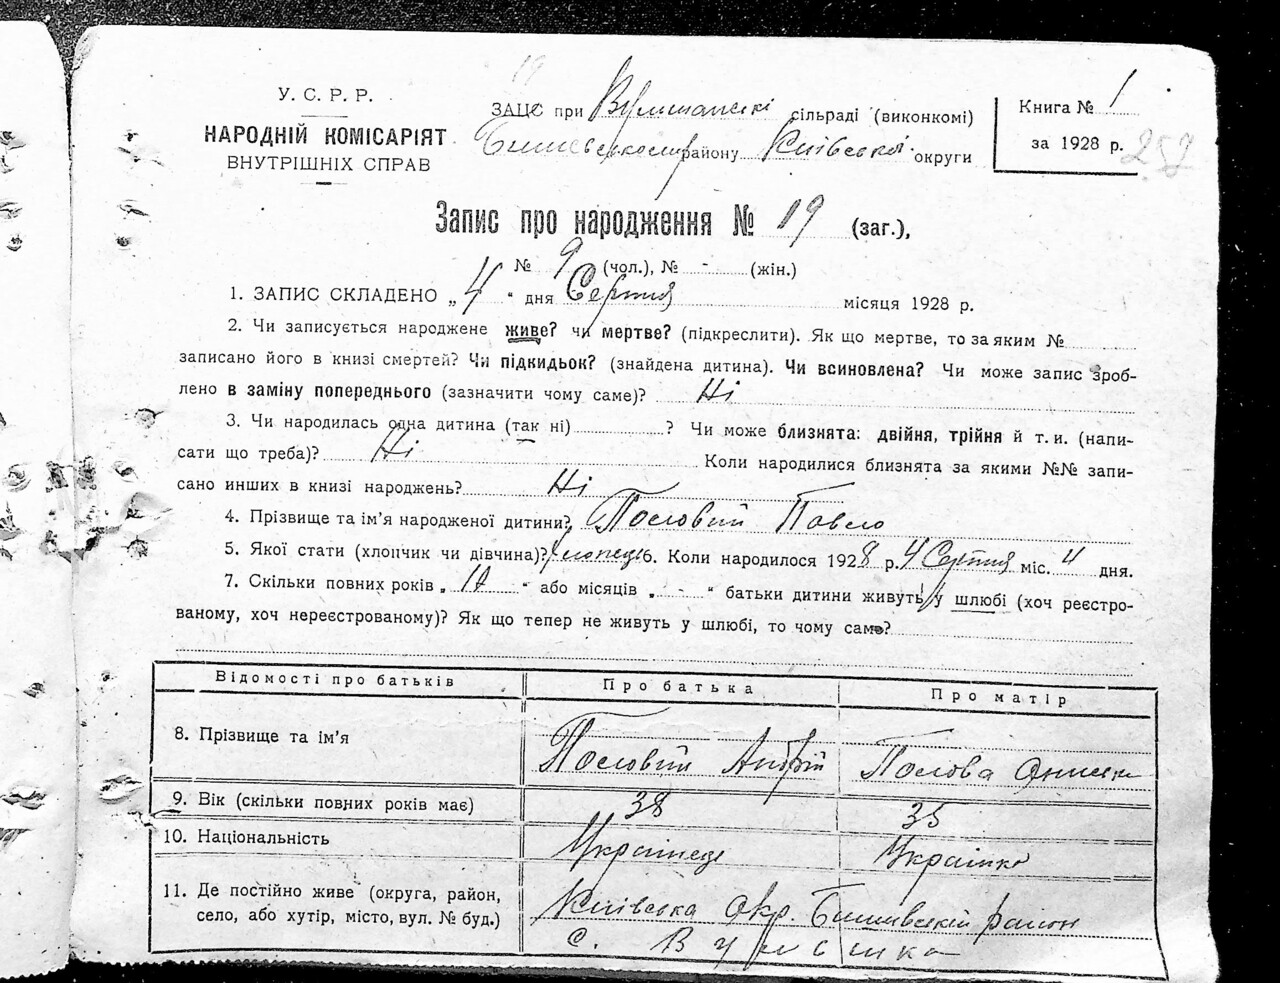 У. С. Р. Р.
НАРОДНІЙ КОМІСАРІЯТ
ВНУТРІШНІХ СПРАВ
ЗАЦС при сільраді (виконкомі)
району Київської округи
Книга № 1
за 1928 р. 257
Запис про народження № 19 (заг.),
№ 9 (чол.), № - (жін.)
1. ЗАПИС СКЛАДЕНО „ 4 “ дня Серпня місяця 1928 р.
2. Чи записується народжене живе? чи мертве? (підкреслити). Як що мертве, то за яким №
записано його в книзі смертей? Чи підкидьок? (знайдена дитина). Чи всиновлена? Чи може запис зроб-
лено в заміну попереднього (зазначити чому саме)? Ні
3. Чи народилась одна дитина (так ні) ? Чи може близнята: двійня, трійня й т. и. (напи-
сати що треба)? Ні Коли народилися близнята за якими №№ запи-
сано инших в книзі народжень? Ні
4. Прізвище та ім'я народженої дитини? Пословий Павло
5. Якої стати (хлопчик чи дівчина)? хлопець 6. Коли народилося 1928 р. 4 Серпня міс. 4 дня.
7. Скільки повних років „ “ або місяців „ - “ батьки дитини живуть у шлюбі (хоч реєстро-
ваному, хоч нереєстрованому)? Як що тепер не живуть у шлюбі, то чому саме?
Відомості про батьків Про батька Про матір
8. Прізвище та ім'я Пословий Андрій
9. Вік (скільки повних років має) 38 35
10. Національність Українець Українка
11. Де постійно живе (округа, район, Київська окр. район
село, або хутір, місто, вул. № буд.) с.